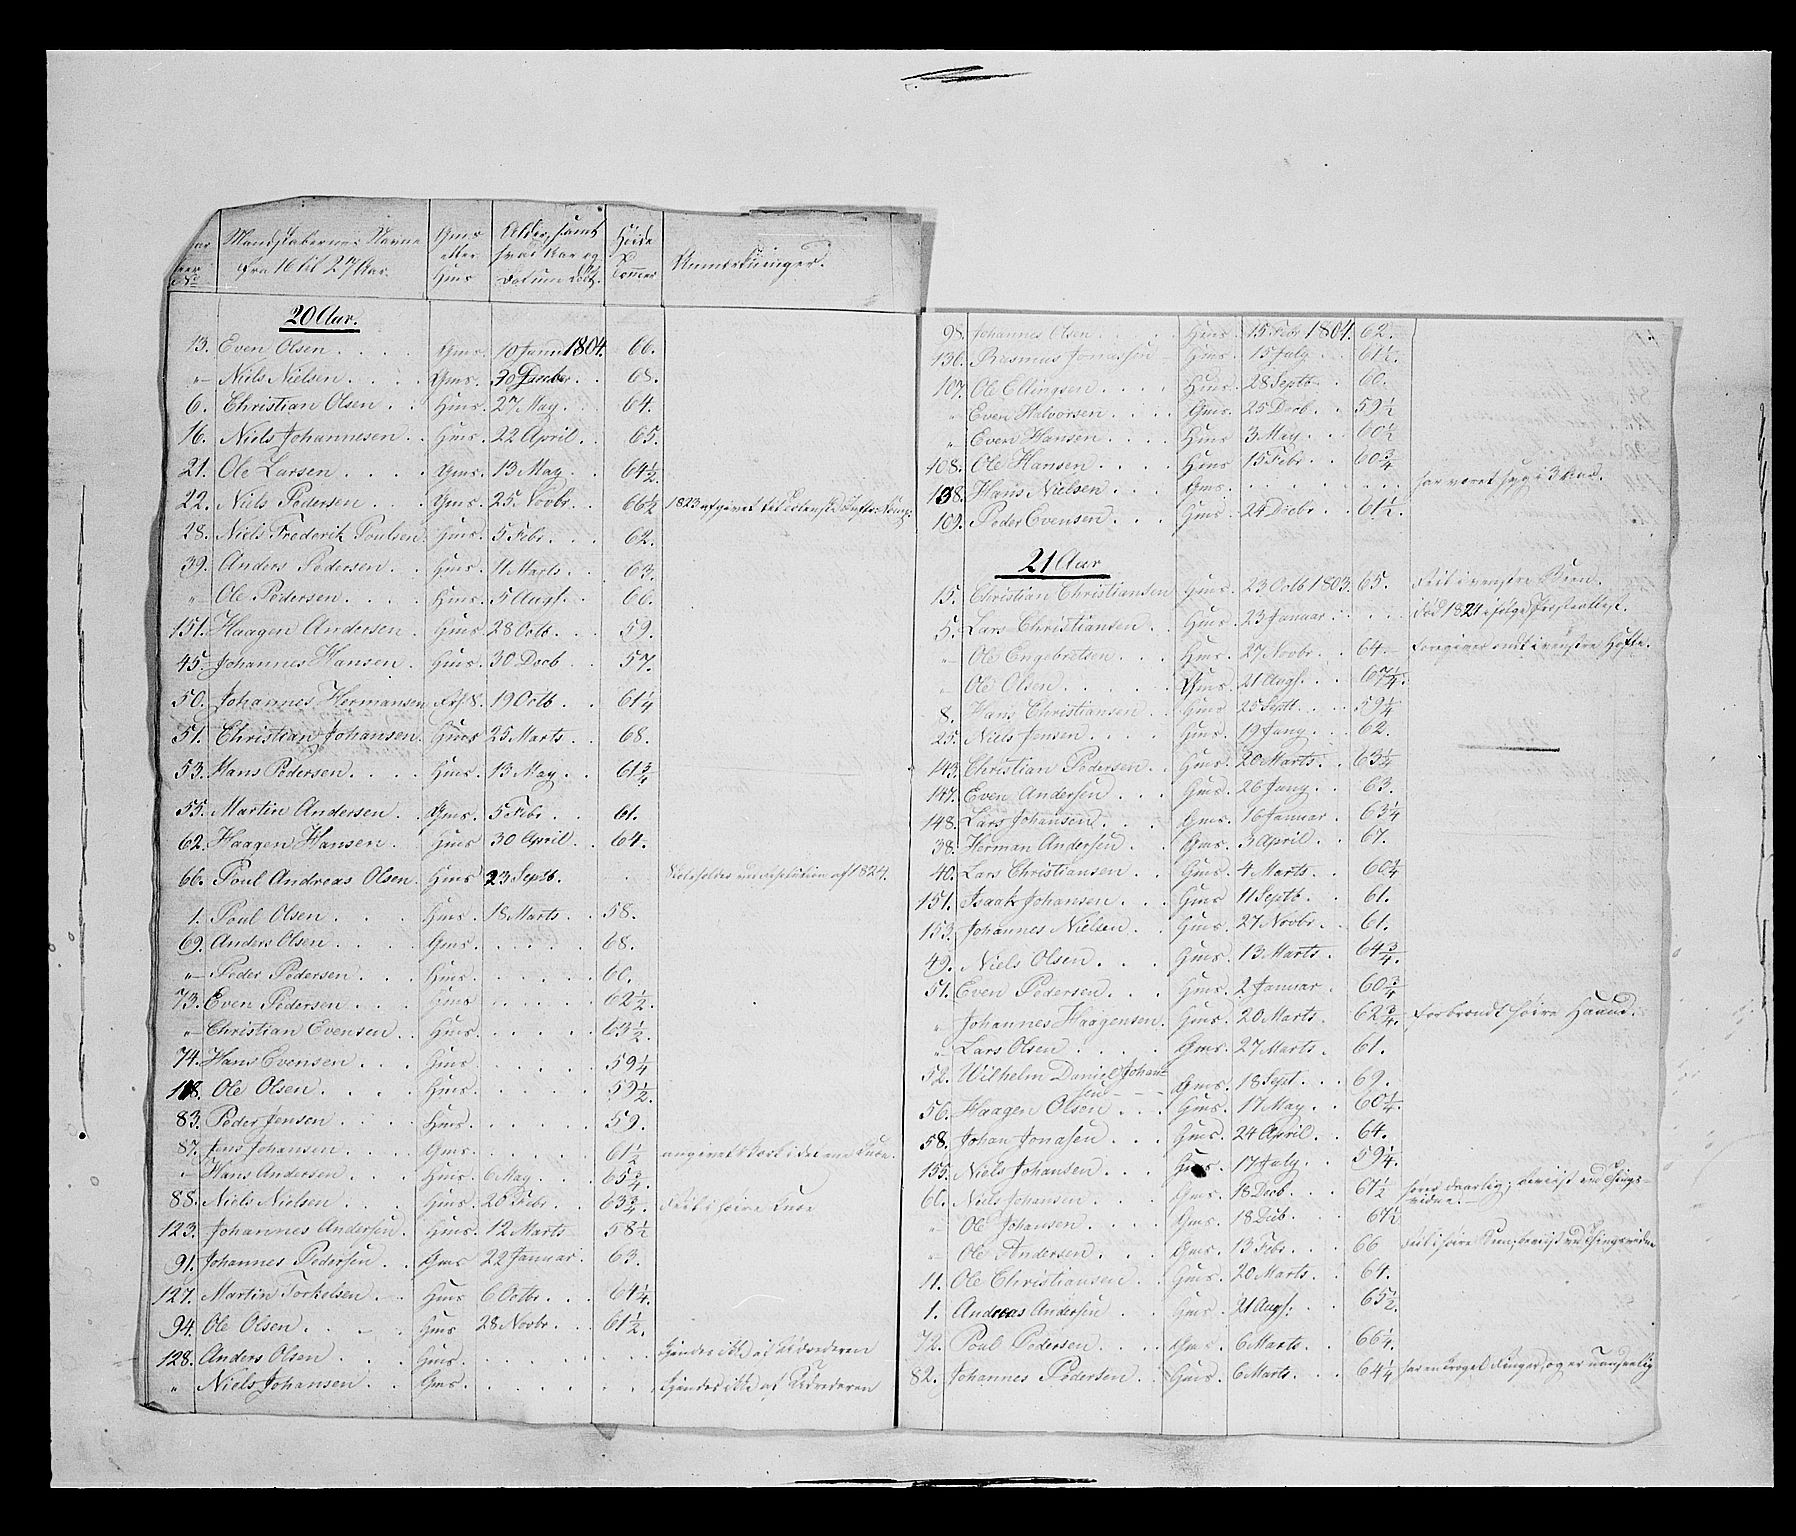 Mandskabernes Navne
fra 16 til 27 Aar.
Gms
eller
Hms
Alder, samt
hvad Aar og
Datum født.
Høide
Tommer
Anmærkninger.
20 Aar.
13. Even Olsen Gms. 10 Janu 1804. 66.
" Niels Nielsen Gms. 30 Decber. 68.
6. Christian Olsen Hms. 27 May. 64.
16. Niels Johannesen Hms. 22 April. 65.
21. Ole Larsen Gms. 13 May 64½.
22. Niels Pedersen Gms. 25 Novbr. 66¼ 1823 afgivet til
28. Niels Frederik Poulsen Hms. 5 Febr. 62.
39. Anders Pedersen Hms. 11 Marts. 63.
" Ole Pedersen Hms. 5 Augs. 66.
151. Haagen Andersen Hms. 28 Octb. 59.
45. Johannes Hansen Hms. 30 Decb 57.
50. Johannes Hermansen 19 Octb. 61¼
51. Christian Johansen Hms 25 Marts. 68.
53. Hans Pedersen Hms. 13 May. 61¾
55. Martin Andersen Gms. 5 Febr. 61.
62. Haagen Hansen Hms 30 April. 64.
66. Poul Andreas Olsen Hms 23 Septb. resolution af 1824.
1. Poul Olsen Hms. 18 Marts. 58.
69. Anders Olsen Gms. 68.
" Peder Pedersen Hms. 60.
73. Even Pedersen Hms 62½.
" Christian Evensen Hms. 63½.
74. Hans Evensen Hms 59¼
118. Ole Olsen Hms. 59½.
83. Peder Jensen Hms. 59.
87. Jens Johansen Gms. 61½ angivet
" Hans Andersen Hms. 6 May. 65¾.
88. Niels Nielsen Hms. 20 Febr. 63¾. Feil i høire
123. Johannes Andersen Hms. 12 Marts 58½
91. Johannes Pedersen Gms 22 Januar. 63.
127. Martin Torkelsen Hms 6 Octbr. 64¼.
94. Ole Olsen Hms 28 Novbr. 61½.
128. Anders Olsen Hms. kjendes ikke af
" Niels Johansen Gms. kjendes ikke af
98. Johannes Olsen Hms. 15 Febr 1804. 62.
136. Rasmus Jonassen Hms. 15 July 61½.
107. Ole Ellingsen Hms. 28 Septb. 60.
" Even Halvorsen Gms. 25 Decb. 59½
" Even Hansen Hms 3 May. 60½
108. Ole Hansen Hms 15 Febr. 60¾
138. Hans Nielsen Gms. har været syg i 3 Aar.
109. Peder Evensen Hms. 24 Decbr. 61½.
21 Aar
15. Christian Christiansen Gms. 23 Octb 1803. 65. Feil i venstre
5. Lars Christiansen Hms. 23 Januar død 1821 ifølge Presteattest.
" Ole Engebretsen Hms. 27 Novbr. 64. foregiver ont i venstre Hofte.
" Ole Olsen Gms. 21 Augs. 67¼.
8. Hans Christiansen Hms 25 Septb. 59¼
25. Niels Jensen Hms. 19 Juny. 62.
143. Christian Pedersen Hms. 20 Marts. 63¼
147. Even Andersen Gms. 26 Juny. 63.
148. Lars Johansen Gms. 16 Januar. 63¼
38. Herman Andersen Gms. 3 April. 67.
40. Lars Christiansen Hms. 4 Marts. 60¼
151. Isaak Johansen Hms 11 Septb. 61.
153. Johannes Nielsen Gms. 27 Novbr. 61.
49. Niels Olsen Gms. 13 Marts. 64¾.
51. Even Pedersen Hms. 2 Januar. 60¾
" Johannes Haagensen Gms. 20 Marts. 62¾. forbrændt høire Haand.
" Lars Olsen Gms. 27 Marts. 61.
52. Wilhelm Daniel Johan-
sen Gms. 18 Sept. 69.
56. Haagen Olsen Gms. 17 May. 60¼.
58. Johan Jonasen Gms. 24 April. 64.
155. Niels Johansen Hms. 17 July. 59¼.
60. Niels Johansen Gms. 18 Decb. 61½ hører daarlig, beviist ved Things-
vidne.
" Ole Johansen Gms. 18 Decb. 67½
" Ole Andersen Gms. 13 Febr. 66 Feil i høire beviist ved Thingsvidne
11. Ole Christiansen Hms. 20 Marts. 64.
1. Andreas Andersen Gms. 21 Augs. 65½.
72. Poul Pedersen Gms. 6 Marts. 66¼.
82. Johannes Pedersen Hms. 6 Marts. 64¼ har en kroget Finger, og er uanseelig